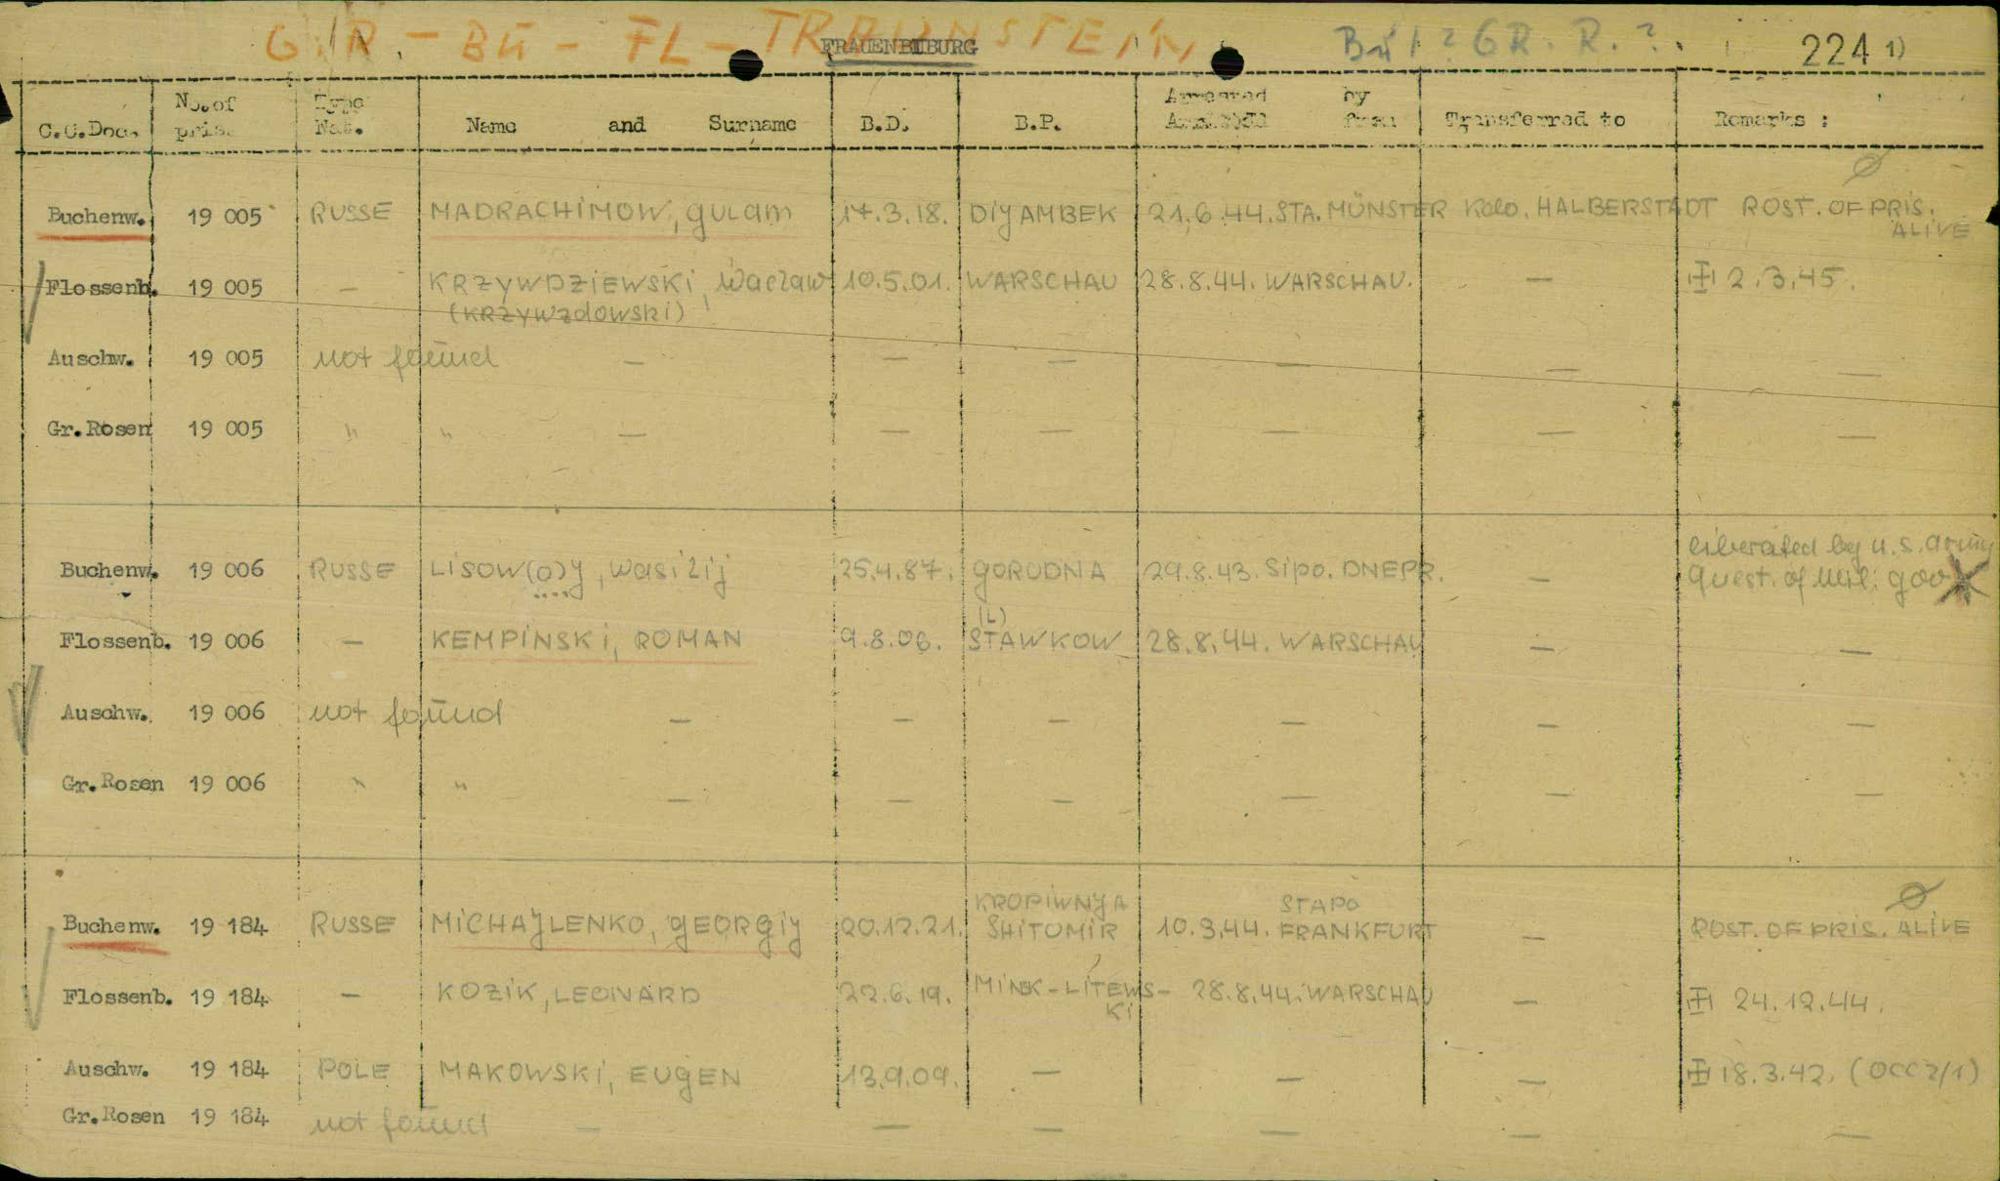 G.R - BU - FL - TRAUNSTEIN,
Bu! ? GR. R. ?.
224 1)
C.C.Doc. No. of pris. Type Nat. Name and Surname B.D. B.P. Arrested by from Transferred to Remarks :
Buchenw. 19 005 RUSSE MADRACHiMOW, gulam 17.3.18. DiyAMBEK 21.6.44. STA. MÜNSTER Kdo. HALBERSTADT ROST. OF PRIS. ALiVE
Flossenb. 19 005 — KRZYWDZiEWSKi, Waclaw 10.5.01. WARSCHAU 28.8.44. WARSCHAU. — 2.3.45.
(KRZYWZdOWSKi)
Auschw. 19 005 not found — — — — — —
Gr.Rosen 19 005 " " — — — — — —
Buchenw. 19 006 RUSSE LiSOW(O)Y, Wasilij 25.4.87. gORODNIA 29.8.43. Sipo. DNEPR. — liberated by U.S. army
Quest. of Mil. gov
(L)
Flossenb. 19 006 — KEMPiNSKi, ROMAN 9.8.06. STAWKOW 28.8.44. WARSCHAU — —
Auschw. 19 006 not found — — — — — —
Gr.Rosen 19 006 " " — — — — — —
KROPiWNyA STAPO
Buchenw. 19 184 RUSSE MiCHAJLENKO, gEORgiy 20.12.21. SHiTOMiR 10.3.44. FRANKFURT — ROST. OF PRIS. ALiVE
Flossenb. 19 184 — KOZiK, LEONARD 22.6.19. MiNSK-LiTEWS-Ki 28.8.44. WARSCHAU — 24.12.44.
Auschw. 19 184 POLE MAKOWSKi, EUgEN 13.9.09. — — — 18.3.42. (OCC 2/1)
Gr.Rosen 19 184 not found — — — — — —